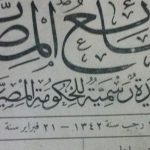 ئع المصر
يدة رسمية للحكومة المصر
رجب سنة ١٣٤٢ — ٢١ فبراير سنة